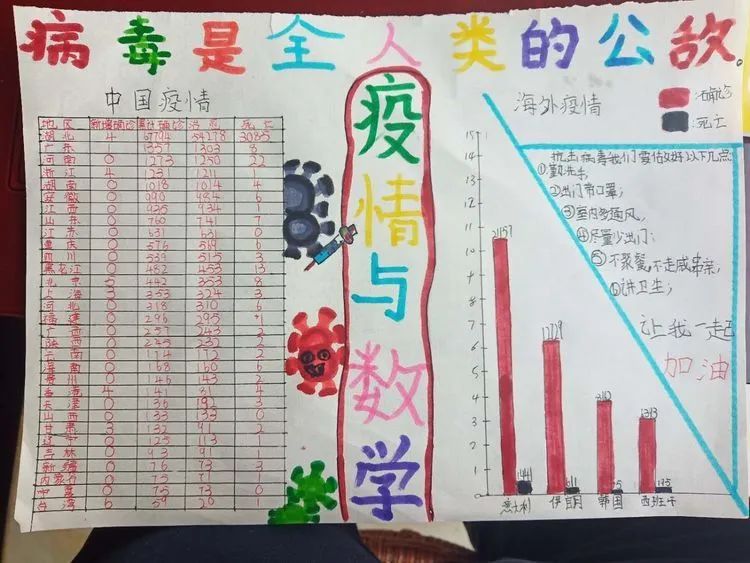 病毒是全人类的公敌。
中国疫情
地区 新增确诊 累计确诊 治愈 死亡
湖北 4 67794 54278 3085
广东 1 1357 1303 8
河南 0 1273 1250 22
浙江 4 1231 1211 1
湖南 0 1018 1014 4
安徽 0 990 984 6
江西 0 935 934 1
山东 0 760 741 7
江苏 0 631 631 0
重庆 0 576 569 6
四川 0 539 515 3
黑龙江 0 482 453 13
北京 5 442 353 8
上海 3 353 324 3
河北 0 318 310 6
福建 0 296 295 1
广西 0 257 243 2
陕西 0 245 232 2
云南 0 174 172 2
海南 0 168 160 6
贵州 0 146 143 2
香港 4 141 81 4
天津 0 136 192 3
山西 0 133 133 0
甘肃 3 132 91 2
辽宁 0 125 113 1
吉林 0 93 91 1
新疆 0 76 73 3
内蒙古 0 75 71 1
宁夏 0 75 73 0
台湾 6 59 20 1
疫情与数学
海外疫情
确诊
死亡
抗击病毒我们要做好以下几点
①勤洗手,
②出门带口罩;
③室内多通风,
④尽量少出门;
⑤不聚餐,不走戚串亲,
⑥讲卫生;
让我一起
加油
15
14
13
12
11
10
9
8
7
6
5
4
3
2
1
0
意大利 伊朗 韩国 西班牙